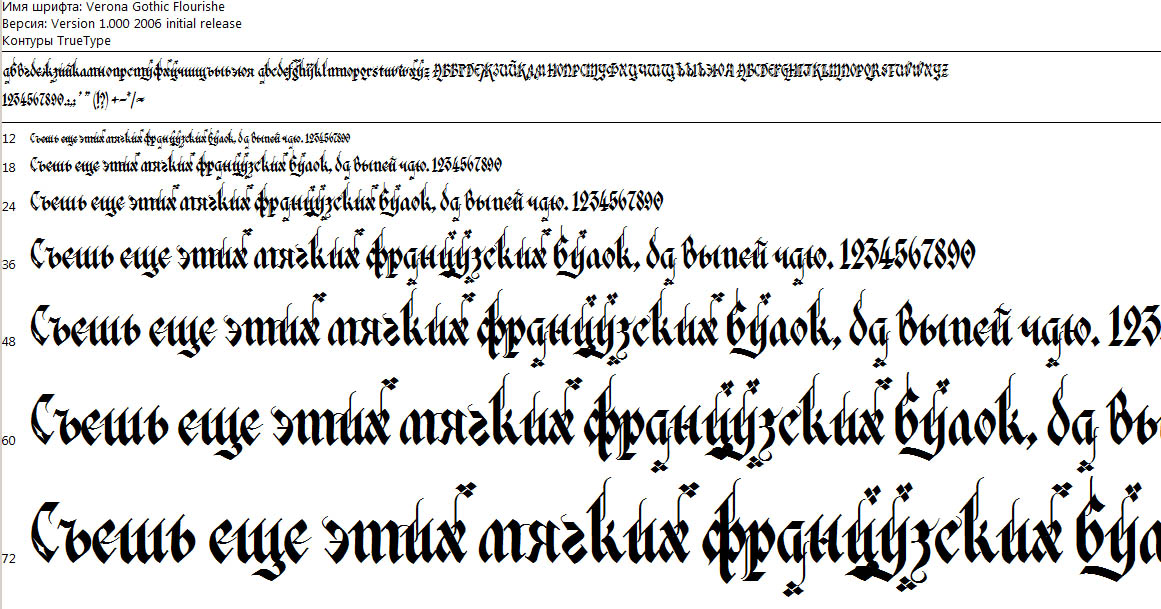 Имя шрифта: Verona Gothic Flourishe
Версия: Version 1.000 2006 initial release
Контуры TrueType
абвгдежзийклмнопрстуфхцчшщъыьэюя abcdefghijklmnopqrstuvwxyz АБВГДЕЖЗИЙКЛМНОПРСТУФХЦЧШЩЪЫЬЭЮЯ ABCDEFGHIJKLMNOPQRSTUVWXYZ
1234567890.:,; ' " (!?) +-*/=
12 Съешь еще этих мягких французских булок, да выпей чаю. 1234567890
18 Съешь еще этих мягких французских булок, да выпей чаю. 1234567890
24 Съешь еще этих мягких французских булок, да выпей чаю. 1234567890
36 Съешь еще этих мягких французских булок, да выпей чаю. 1234567890
48 Съешь еще этих мягких французских булок, да выпей чаю. 123
60 Съешь еще этих мягких французских булок, да вы
72 Съешь еще этих мягких французских була